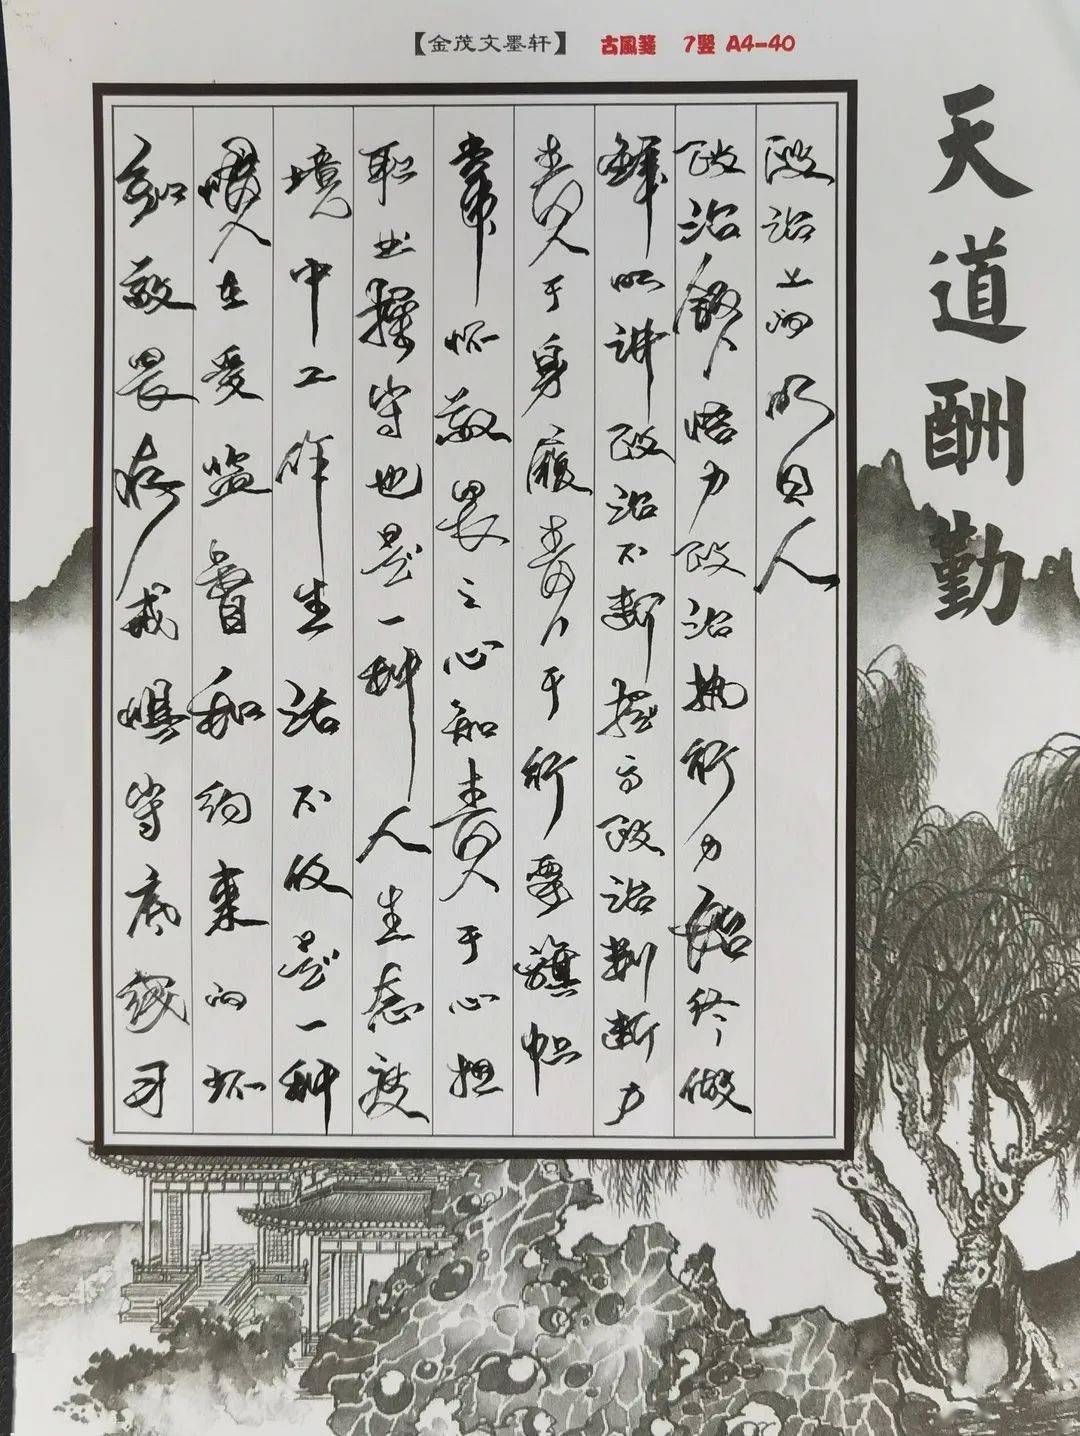 【金茂文墨轩】 古風箋 7豎 A4-40
天道酬勤
政治上的明白人
政治领悟力政治执行力始终做
鲜明讲政治不断提高政治判断力
责任于身履责于行要旗帜
常怀敬畏之心知责任于心担
职业操守也是一种人生态度
境中工作生活不仅是一种
惯在受监督和约束的环
知敬畏存戒惧守底线习